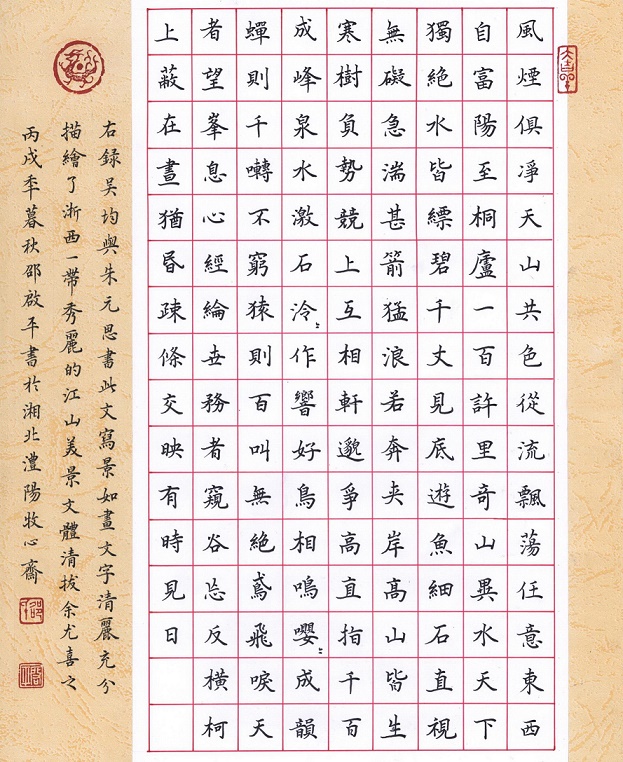 風煙俱凈天山共色從流飄蕩任意東西
自富陽至桐廬一百許里奇山異水天下
獨絕水皆縹碧千丈見底遊魚細石直視
無礙急湍甚箭猛浪若奔夹岸高山皆生
寒樹負勢競上互相軒邈爭高直指千百
成峰泉水激石泠〻作響好鳥相鳴嚶〻成韻
蟬則千囀不窮猿則百叫無絕鳶飛唳天
者望峯息心經綸世務者窺谷忘反橫柯
上蔽在晝猶昏疎條交映有時見日
右録吴均與朱元思書此文寫景如畫文字清麗充分
描繪了浙西一帶秀麗的江山美景文體清拔余尤喜之
丙戌季暮秋邵啟平書於湘北澧陽牧心齋